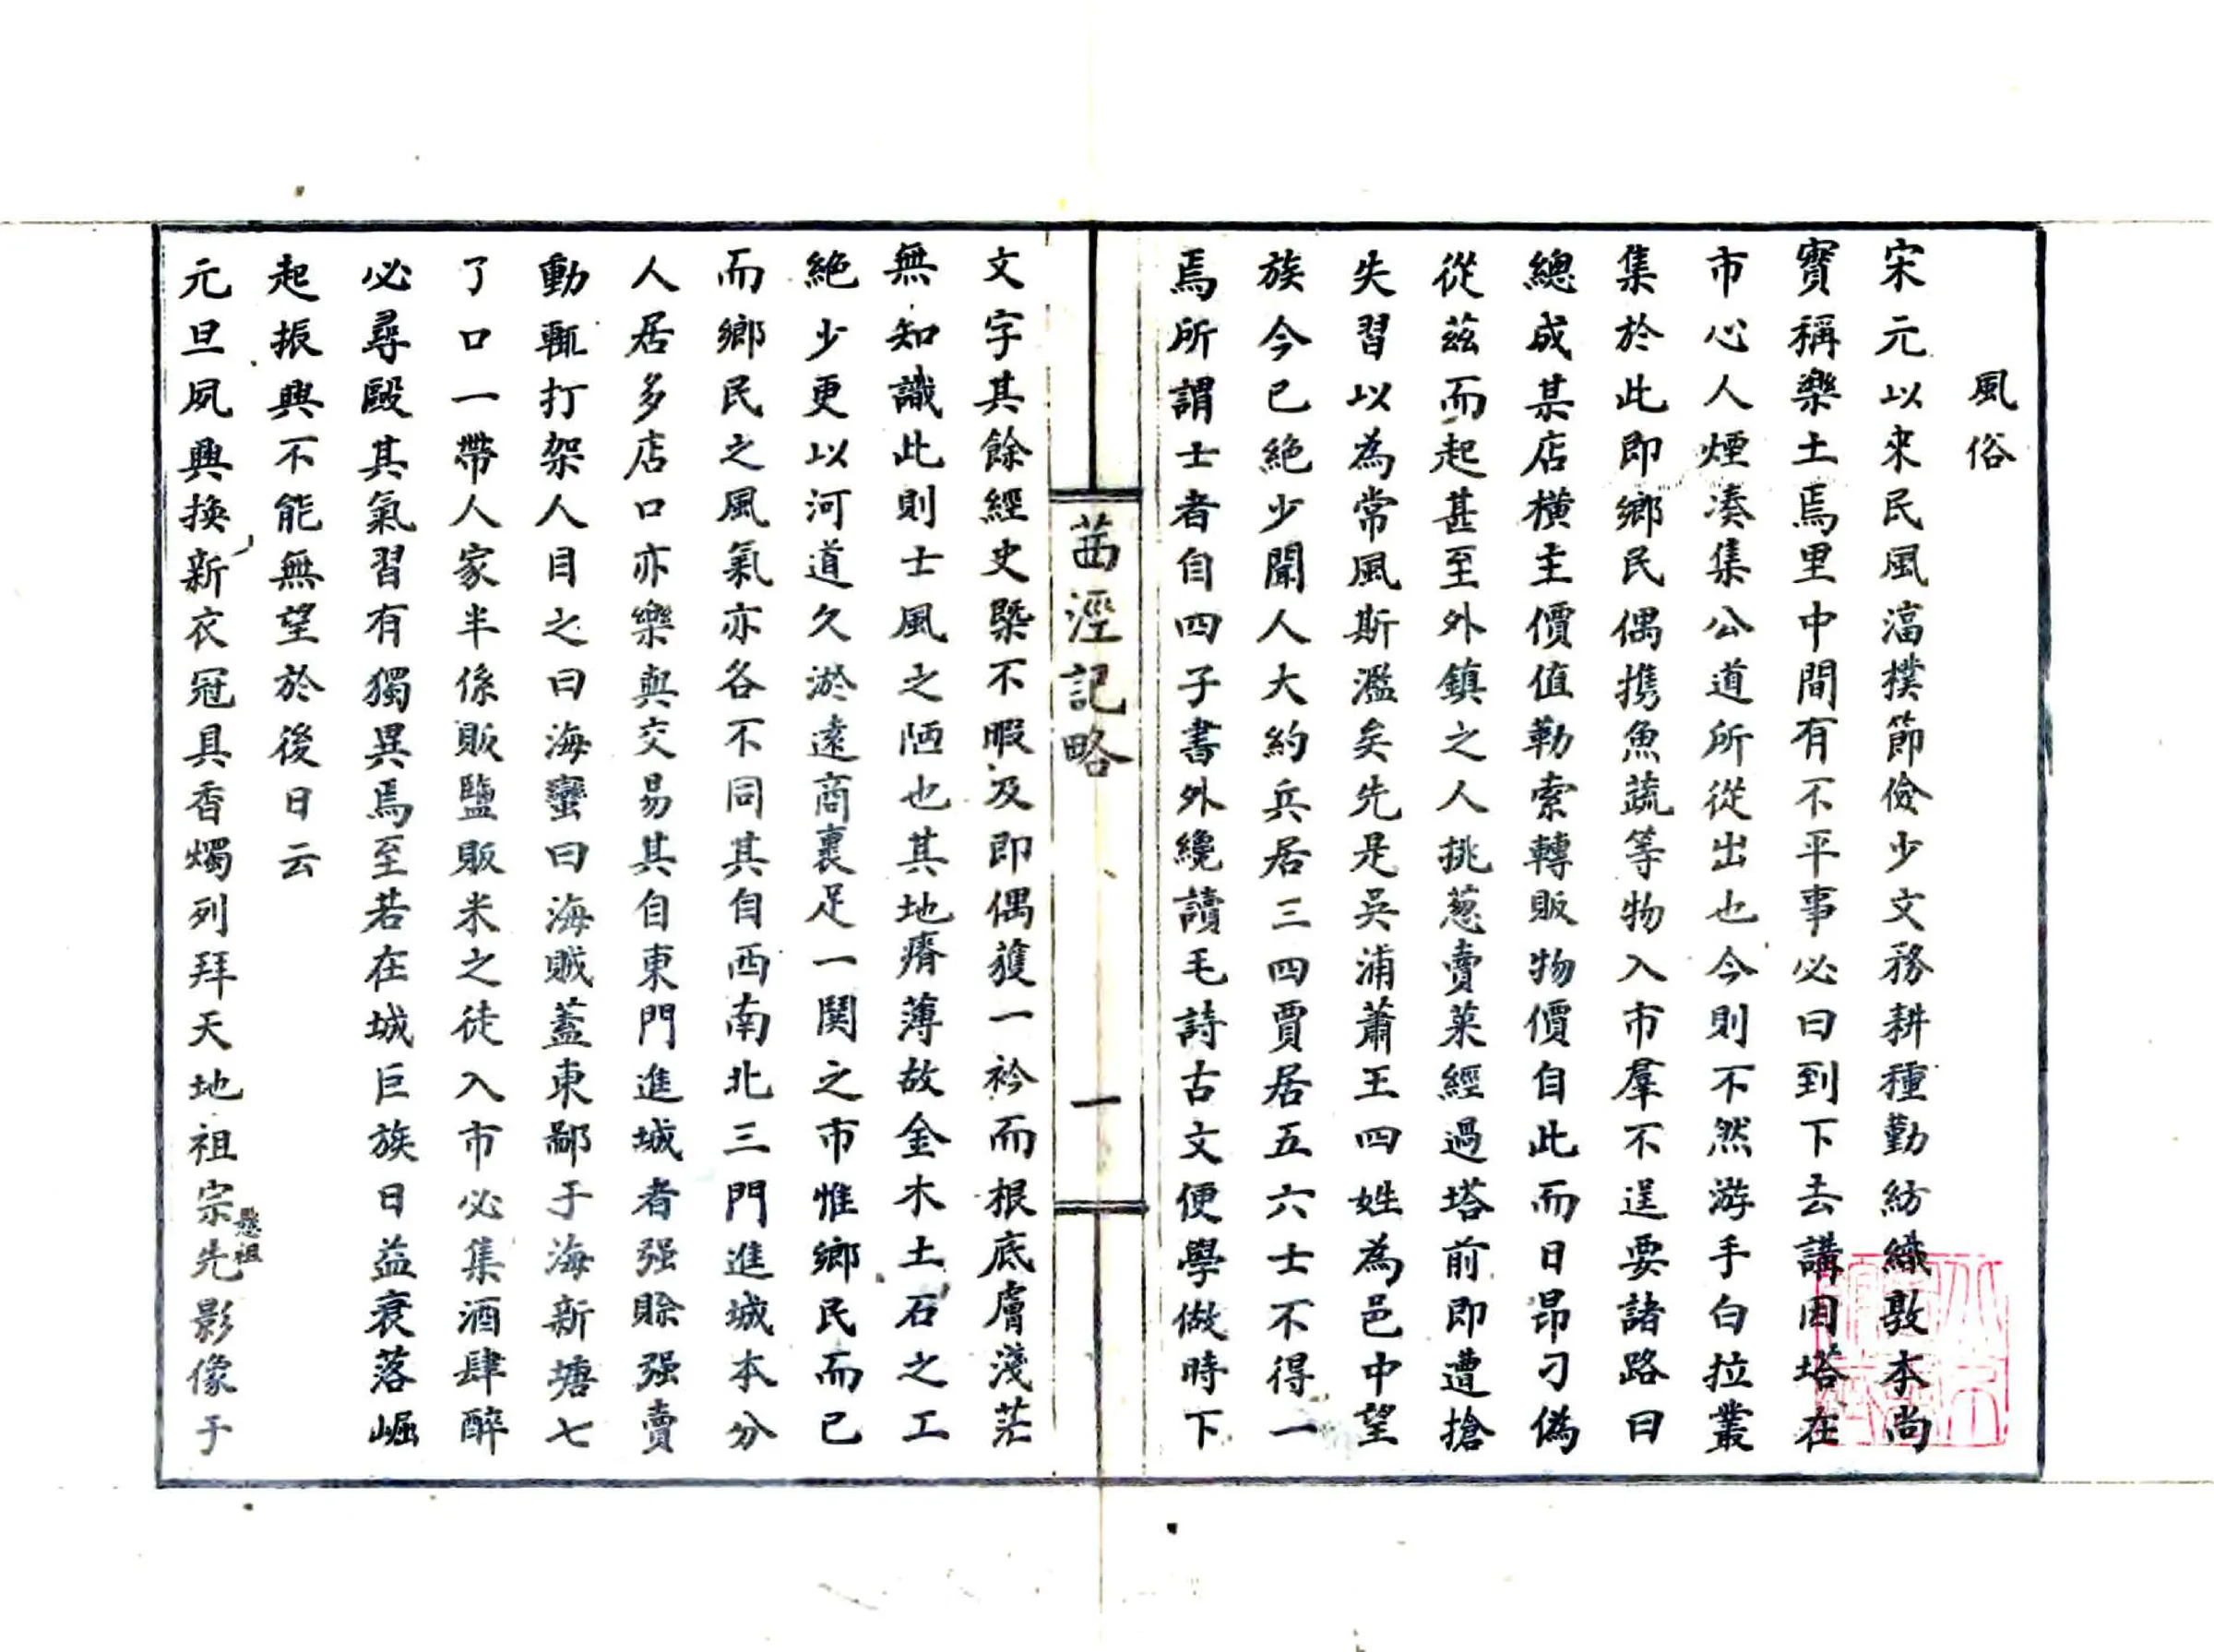 風俗
宋元以來民風湻撲節儉少文務耕種勤紡織敦本尚
實稱樂土焉里中間有不平事必曰到下去講因塔在
市心人煙湊集公道所從出也今則不然游手白拉叢
集於此即鄉民偶攜魚蔬等物入市羣不逞要諸路曰
總成某店橫主價值勒索轉販物價自此而日昂刁偽
從茲而起甚至外鎮之人挑蔥賣菜經過塔前即遭搶
失習以為常風斯濫矣先是吳浦蕭王四姓為邑中望
族今已絕少聞人大約兵居三四賈居五六士不得一
焉所謂士者自四子書外纔讀毛詩古文便學做時下
茜涇記略
一
文字其餘經史槩不暇及即偶獲一衿而根底膚淺茫
無知識此則士風之陋也其地瘠薄故金木土石之工
絕少更以河道久淤遠商裹足一鬨之市惟鄉民而已
而鄉民之風氣亦各不同其自西南北三門進城本分
人居多店口亦樂與交易其自東門進城者强賒强賣
動輒打架人目之曰海蠻曰海賊蓋東鄙于海新塘七
了口一帶人家半係販鹽販米之徒入市必集酒肆醉
必尋毆其氣習有獨異焉至若在城巨族日益衰落崛
起振興不能無望於後日云
元旦夙興換新衣冠具香燭列拜天地祖宗懸祖先影像于